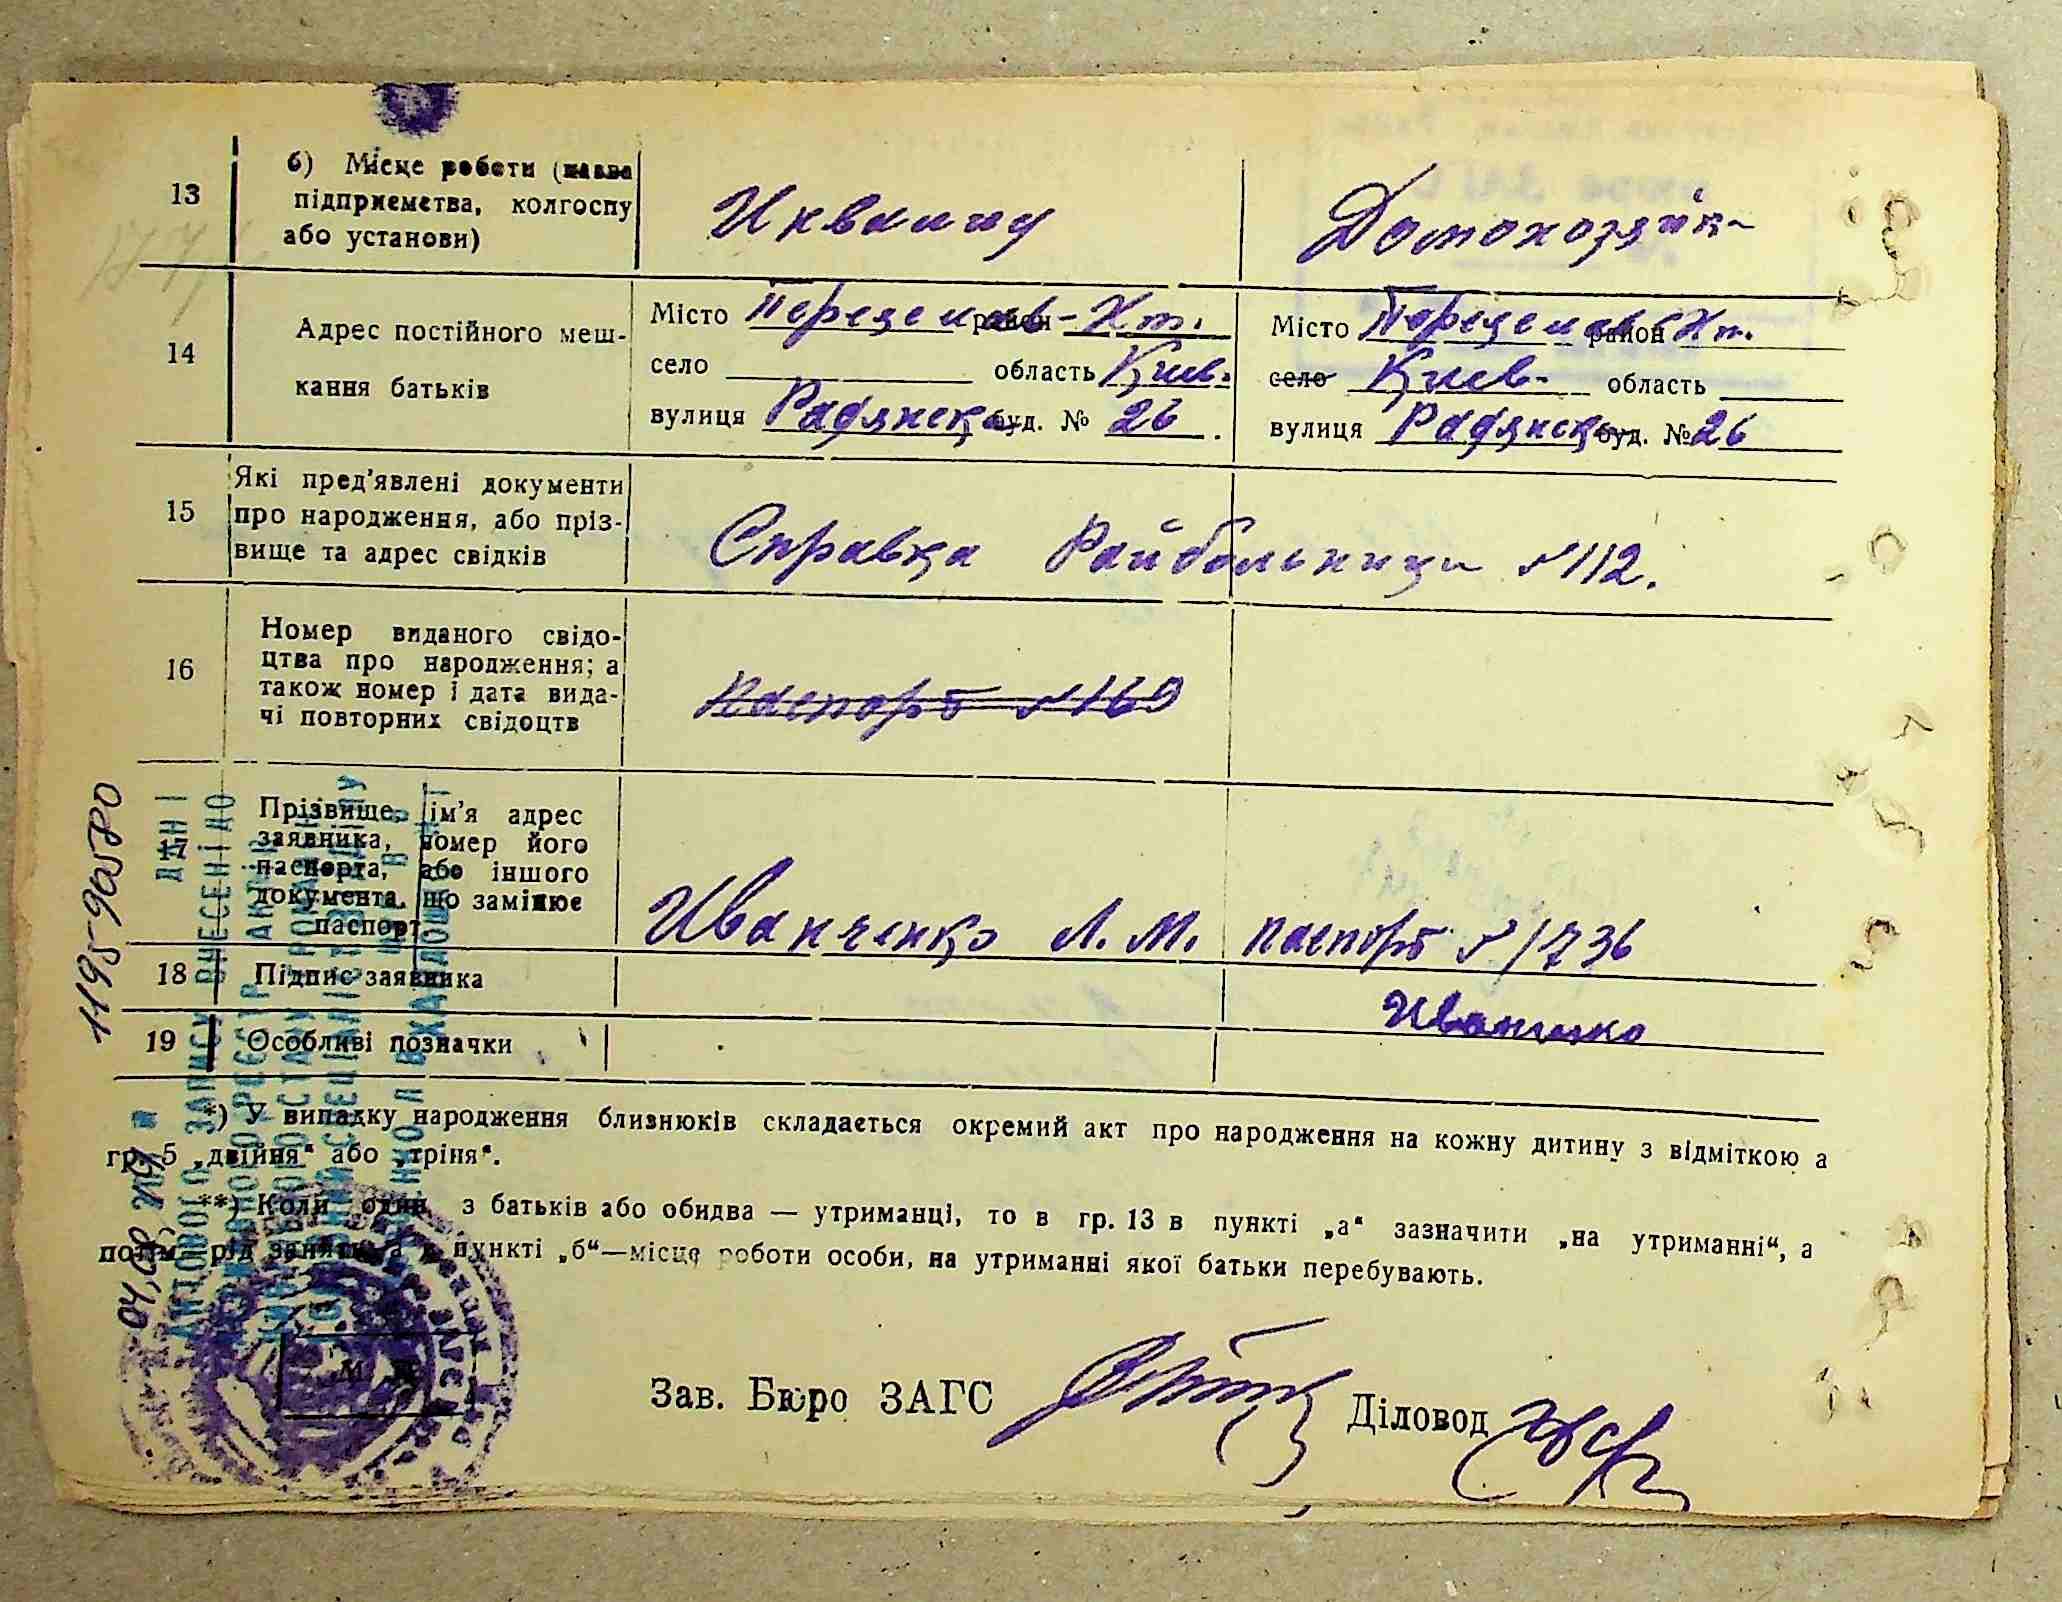 13
б) Місце роботи (назва
підприємства, колгоспу
або установи)
Домохозяйк
14
Адрес постійного меш-
кання батьків
Місто Переяслав район -Хм.
село область Киев.
вулиця Радянска буд. № 26.
Місто Переяслав район Хм.
село Киев- область
вулиця Радянска буд. № 26
15
Які пред'явлені документи
про народження, або пріз-
вище та адрес свідків
Справка Райбольници №112.
16
Номер виданого свідо-
цтва про народження; а
також номер і дата вида-
чі повторних свідоцтв
Паспорт №169
17
Прізвище, ім'я адрес
заявника, номер його
паспорта, або іншого
документа, що замінює
паспорт
Иванченко Л.М. паспорт №1736
18
Підпис заявника
Иванченко
19
Особливі позначки
*) У випадку народження близнюків складається окремий акт про народження на кожну дитину з відміткою а
гр. 5 „двійня“ або „трійня“.
**) Коли один з батьків або обидва — утриманці, то в гр. 13 в пункті „а“ зазначити „на утриманні“, а
потім рід заняття, а в пункті „б“—місце роботи особи, на утриманні якої батьки перебувають.
М. П.
Зав. Бюро ЗАГС
Діловод
ДАНІ
АКТОВОГО ЗАПИСУ ВНЕСЕНІ ДО